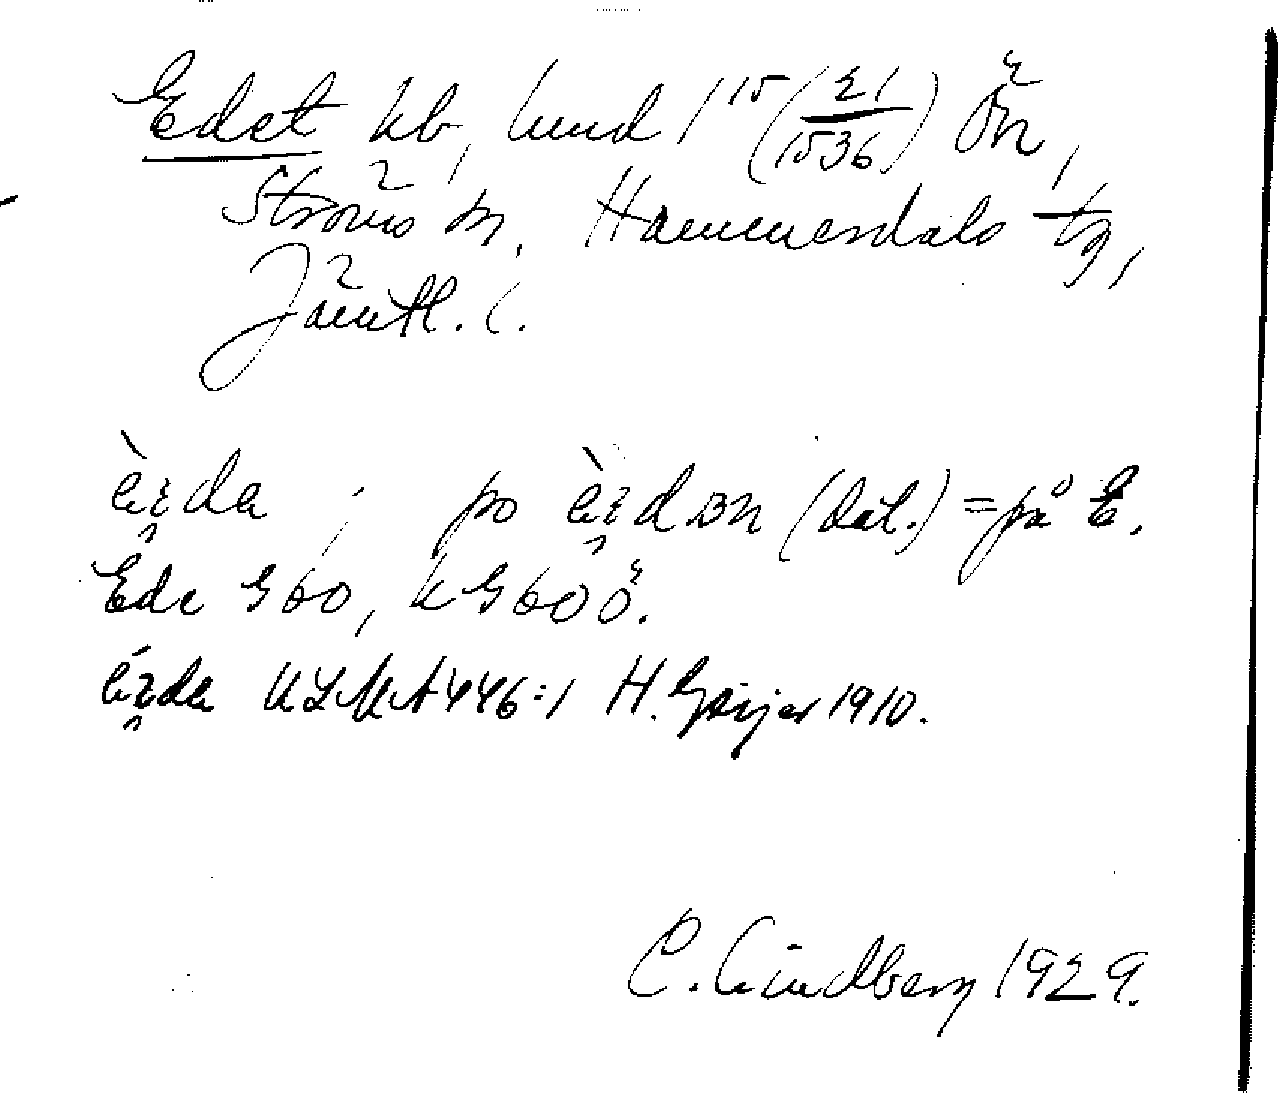 Edet kb, lund 1¹⁵ (21/1536) Ön,
Ströms sn. Hammerdals tg,
Jämtl. l.
èr̯da ; po èr̯dɔn (dat.) = på E.
Ede G 60, k G 60 ö.
ér̯da ULMA 446:1 H. Geijer 1910.
C. Lindberg 1929.